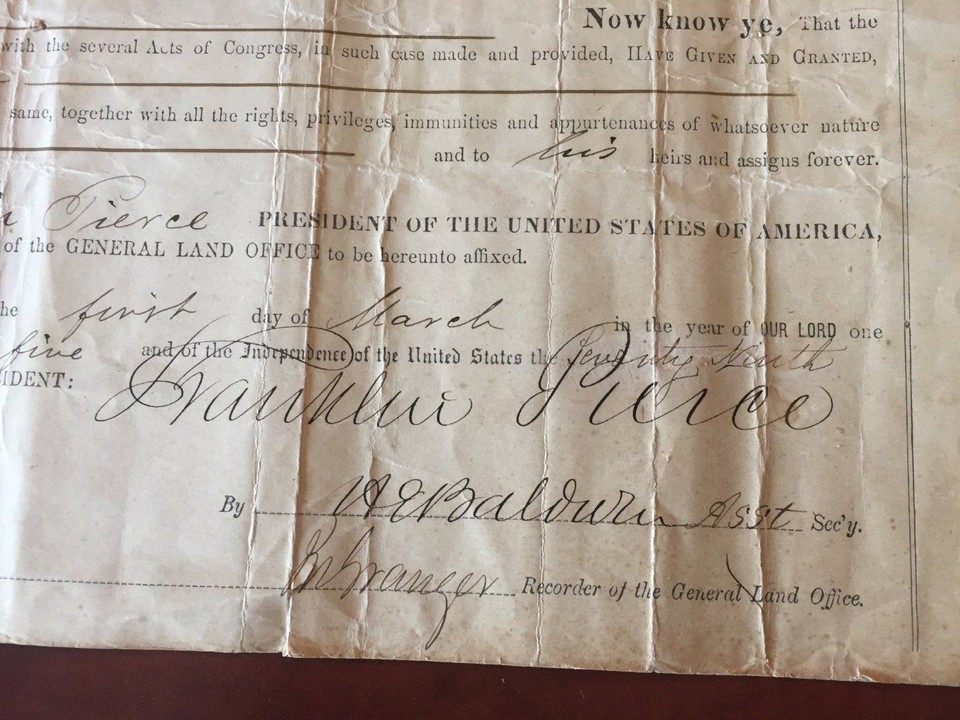 Now know ye, That the
with the several Acts of Congress, in such case made and provided, HAVE GIVEN AND GRANTED,
same, together with all the rights, privileges, immunities and appurtenances of whatsoever nature
and to his heirs and assigns forever.
Pierce PRESIDENT OF THE UNITED STATES OF AMERICA,
of the GENERAL LAND OFFICE to be hereunto affixed.
he first day of March in the year of OUR LORD one
five and of the Independence of the United States the Seventy Ninth
SIDENT: Franklin Pierce
By H E Baldwin Asst Sec'y.
Granger Recorder of the General Land Office.